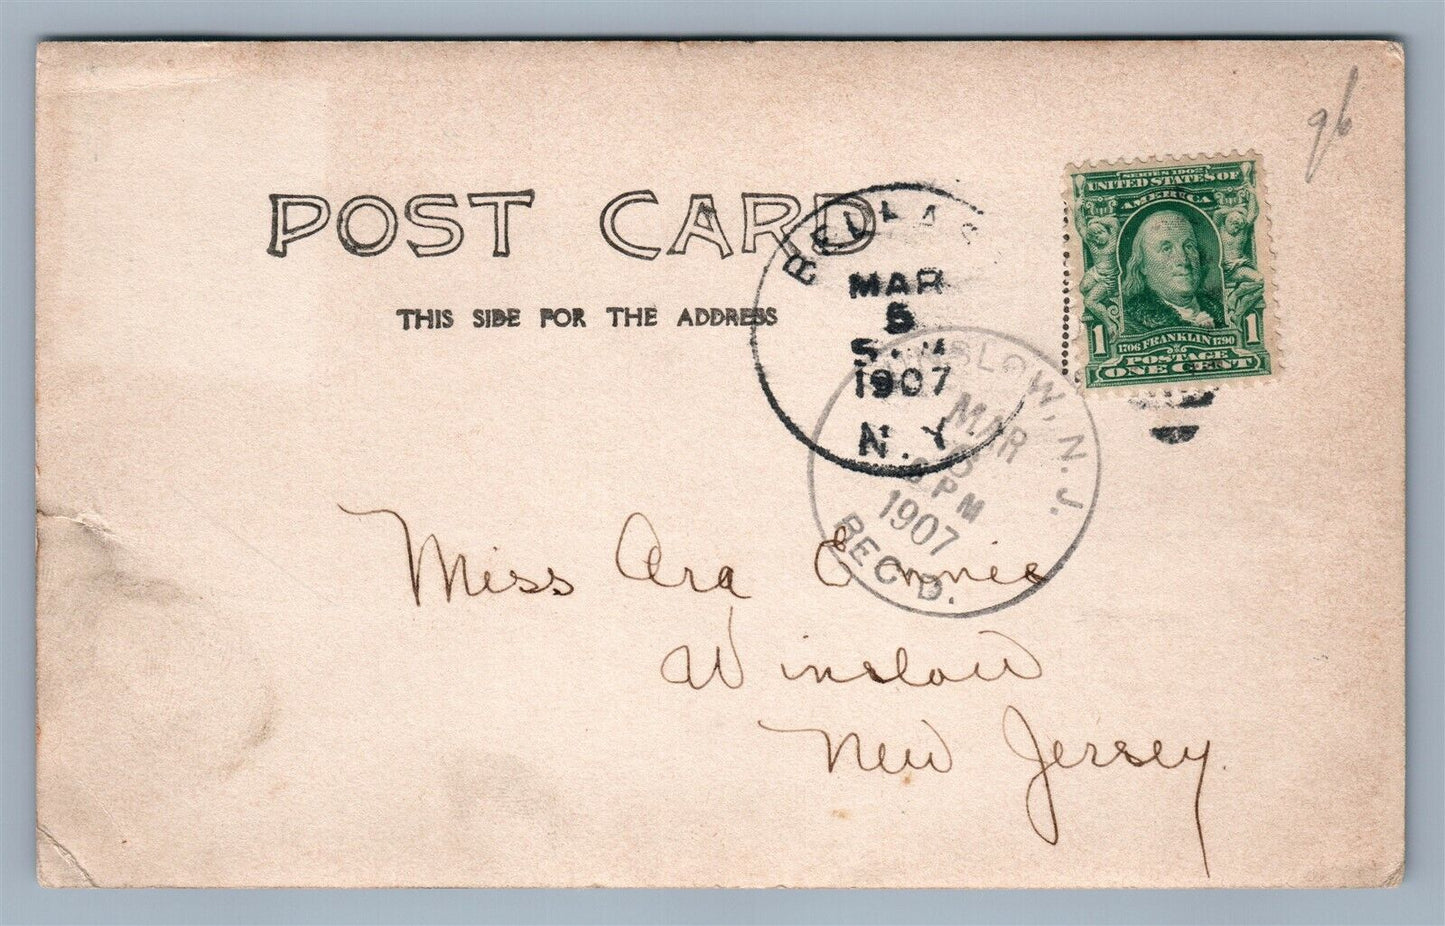 96
POST CARD
THIS SIDE FOR THE ADDRESS
SERIES 1902
UNITED STATES OF
AMERICA
1706 FRANKLIN 1790
1 1
POSTAGE
ONE CENT
MAR
5
1907
N.Y.
WINSLOW, N.J.
MAR
PM
1907
REC'D.
Miss Ora Ennis
Winslow
New Jersey.